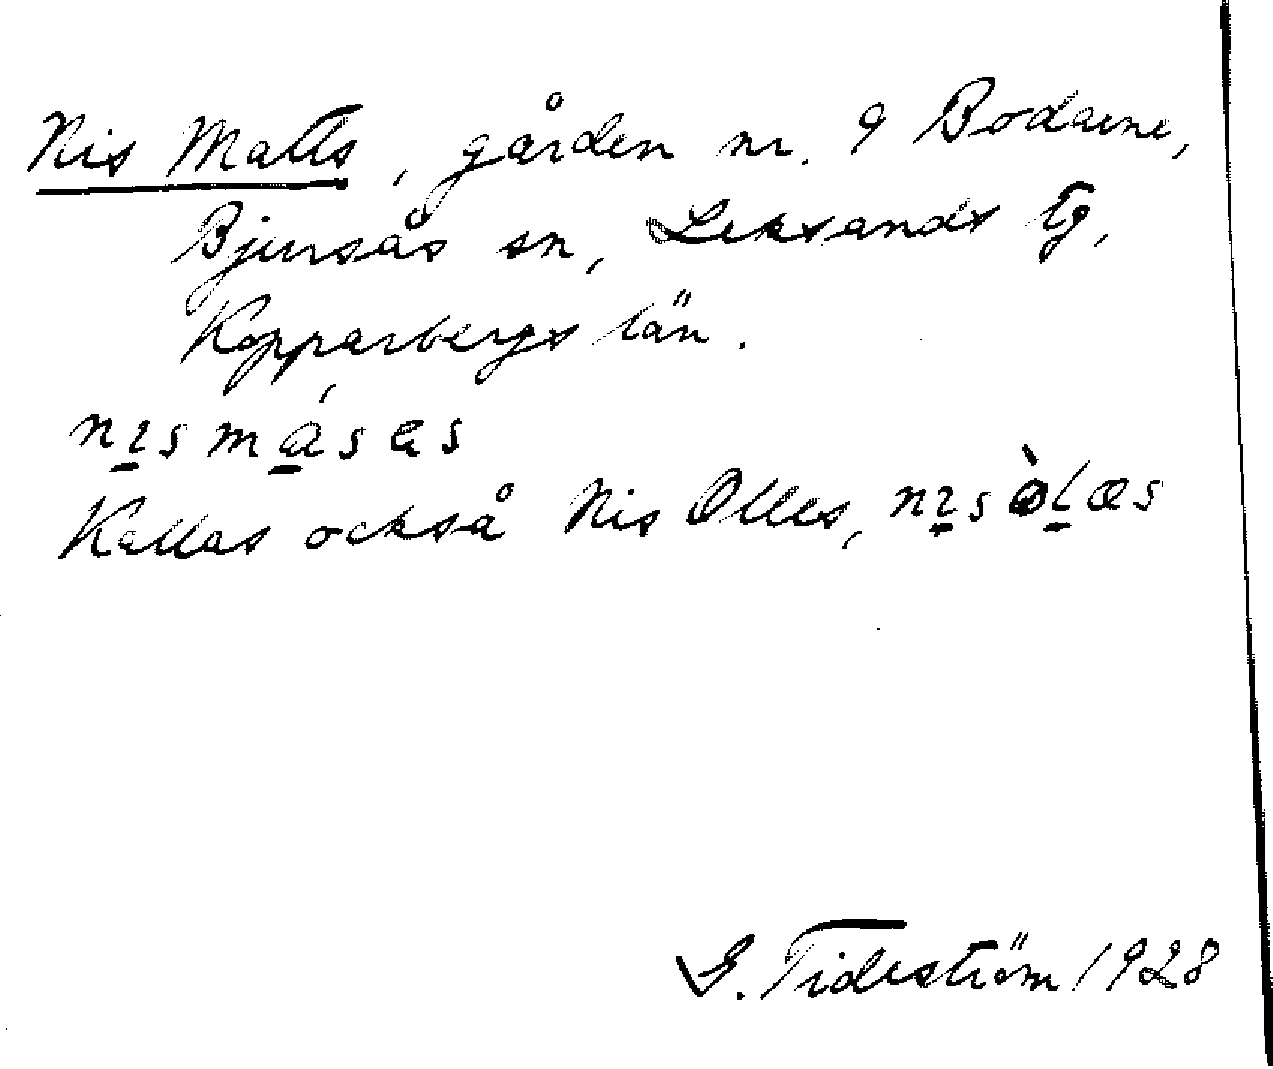 Nis Matts, gården nr. 9 Bodarne,
Bjursås sn, Leksands tg,
Kopparbergs län.
nɪs másɐs
Kallas också Nis Olles, nɪs òlæs
G. Tideström 1928